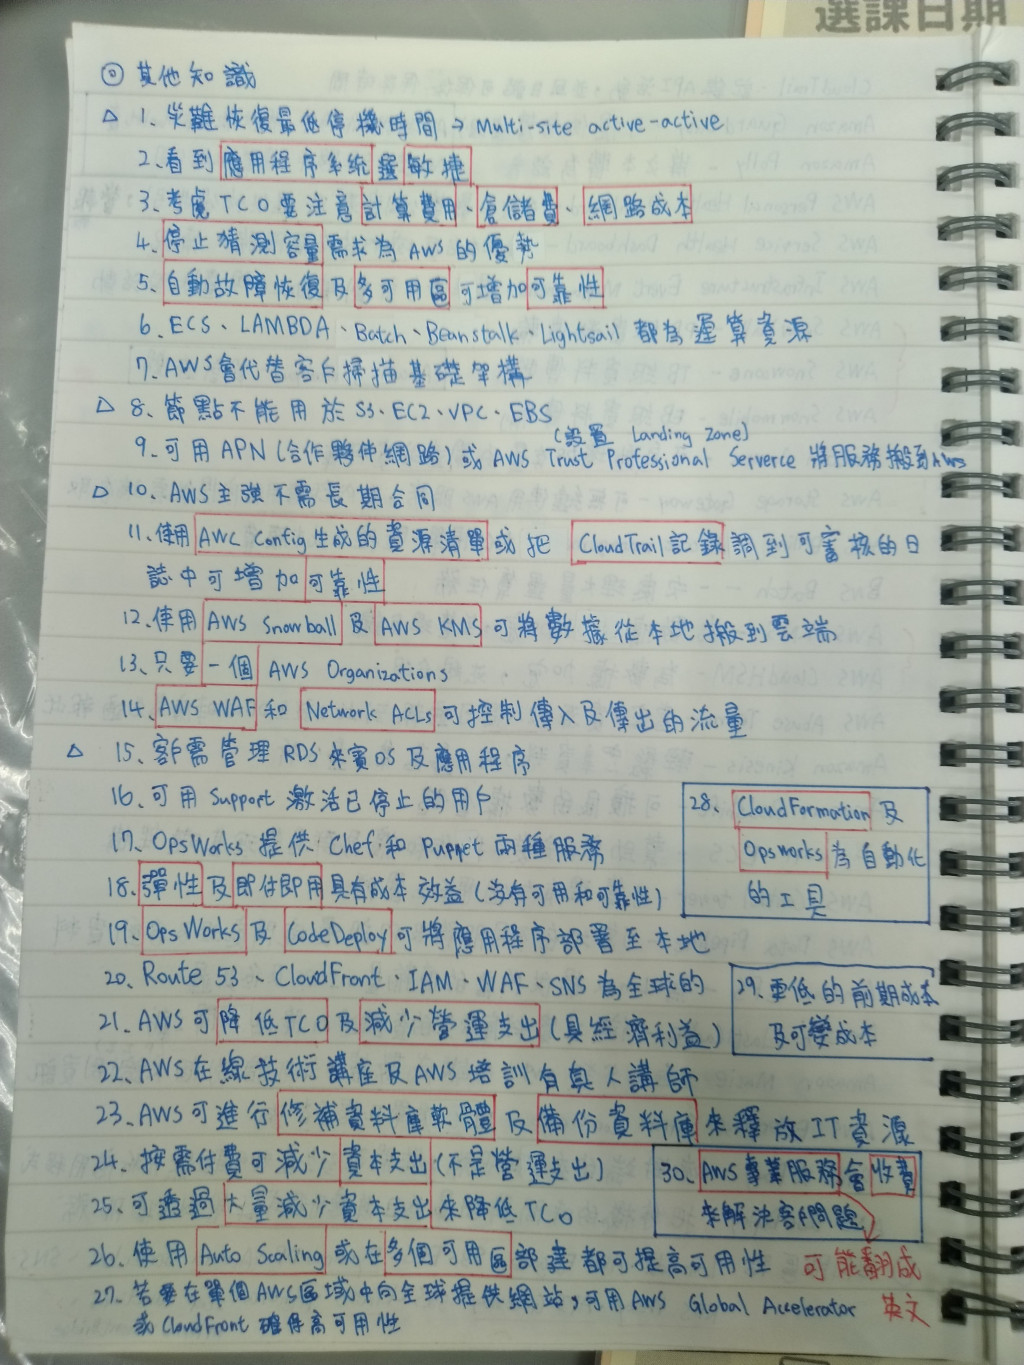 選課日期
◎ 其他知識
△ 1、災難恢復最低停機時間 → Multi-site active-active
2、看到應用程序系統選敏捷
3、考慮TCO要注意計算費用、倉儲費、網路成本
4、停止猜測容量需求為AWS的優勢
5、自動故障恢復及多可用區可增加可靠性
6、ECS、LAMBDA、Batch、Beanstalk、Lightsail 都為運算資源
7、AWS會代替客戶掃描基礎架構
△ 8、節點不能用於S3、EC2、VPC、EBS
(設置 Landing Zone)
9、可用APN(合作夥伴網路)或AWS Trust Professional Serverce 將服務搬到AWS
△ 10、AWS主強不需長期合同
11、使用AWC Config生成的資源清單或把 CloudTrail記錄調到可審核的日
誌中可增加可靠性
12、使用AWS Snowball及AWS KMS可將數據從本地搬到雲端
13、只要一個AWS Organizations
14、AWS WAF和 Network ACLs可控制傳入及傳出的流量
△ 15、客戶需管理RDS來賓OS及應用程序
16、可用Support激活已停止的用戶
17、OpsWorks提供Chef和Puppet兩種服務
18、彈性及即付即用具有成本效益(沒有可用和可靠性)
19、OpsWorks及CodeDeploy可將應用程序部署至本地
20、Route 53、CloudFront、IAM、WAF、SNS為全球的
21、AWS可降低TCO及減少營運支出(具經濟利益)
22、AWS在線技術講座及AWS培訓有真人講師
23、AWS可進行修補資料庫軟體及備份資料庫來釋放IT資源
24、按需付費可減少資本支出(不是營運支出)
25、可透過大量減少資本支出來降低TCO
26、使用Auto Scaling或在多個可用區部建都可提高可用性
27、若要在單個AWS區域中向全球提供網站,可用AWS Global Accelerator
或CloudFront確保高可用性
28、CloudFormation及
Opsworks為自動化
的工具
29、更低的前期成本
及可變成本
30、AWS專業服務會收費
來解決客戶問題
可能翻成
英文